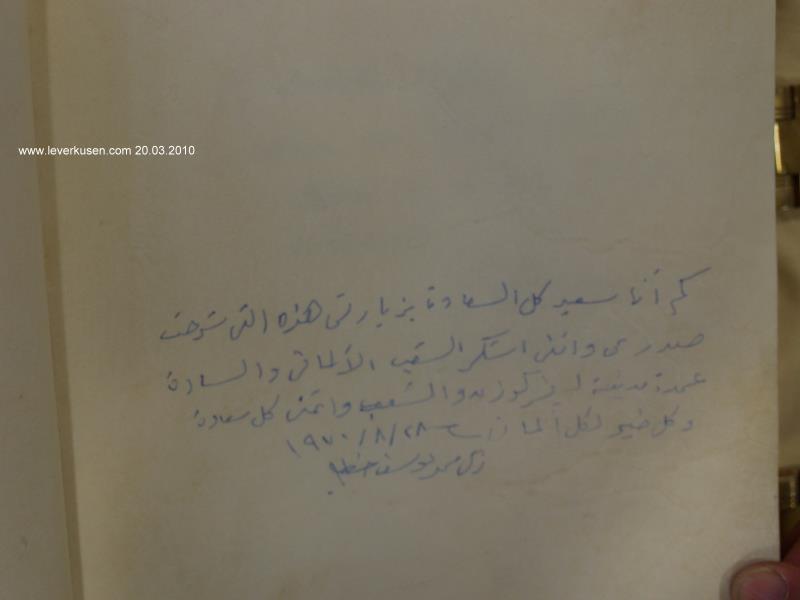 www.leverkusen.com 20.03.2010
كم أنا سعيد كل السعادة بزيارتي هذه التي شرحت
صدري وانني اشكر الشعب الألماني والسادة
عمدة مدينة ليفركوزن والشعب واتمنى كل سعادة
وكل خير لكل ألمان ١٩٧٠/٨/٢٨
محمد يوسف